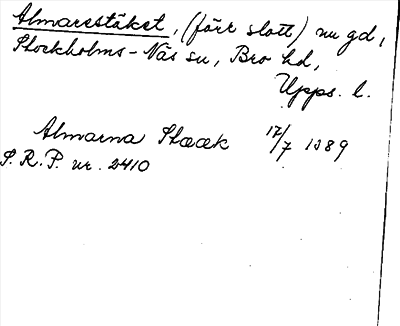 Almarestäket, (förr slott) nu gd,
Stockholms-Näs sn, Bro hd,
Upps. l.
Almarna Stææk 17/7 1389
S.R.P. nr. 2410